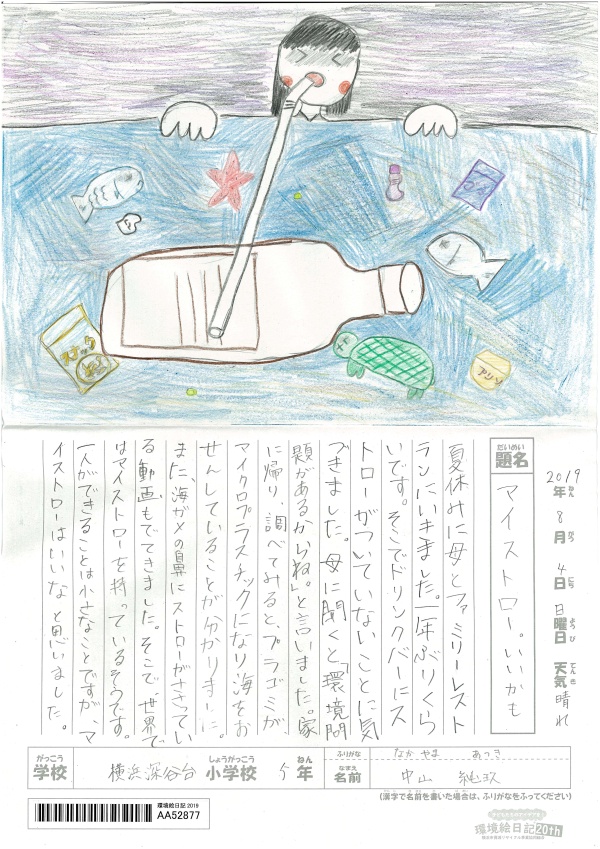 スナック
プリン
2019年 8月 4日 日曜日 天気 晴れ
ねん がつ にち ようび てんき
だいめい
題名
マイストロー。いいかも
夏休みに母とファミリーレスト
ランにいきました。一年ぶりくら
いです。そこでドリンクバーにス
トローがついていないことに気
づきました。母に聞くと「環境問
題があるからね」と言いました。家
に帰り、調べてみると、プラゴミが
マイクロプラスチックになり海をお
せんしていることが分かりました。
また、海ガメの鼻にストローがささってい
る動画もでてきました。そこで、世界で
はマイストローを持っているそうです。
一人ができることは小さなことですが、マ
イストローはいいなと思いました。
がっこう しょうがっこう ねん
学校 横浜深谷台 小学校 5年
ふりがな なかやま あつき
なまえ
名前 中山
(漢字で名前を書いた場合は、ふりがなをふってください)
環境絵日記 2019
AA52877
環境絵日記20th